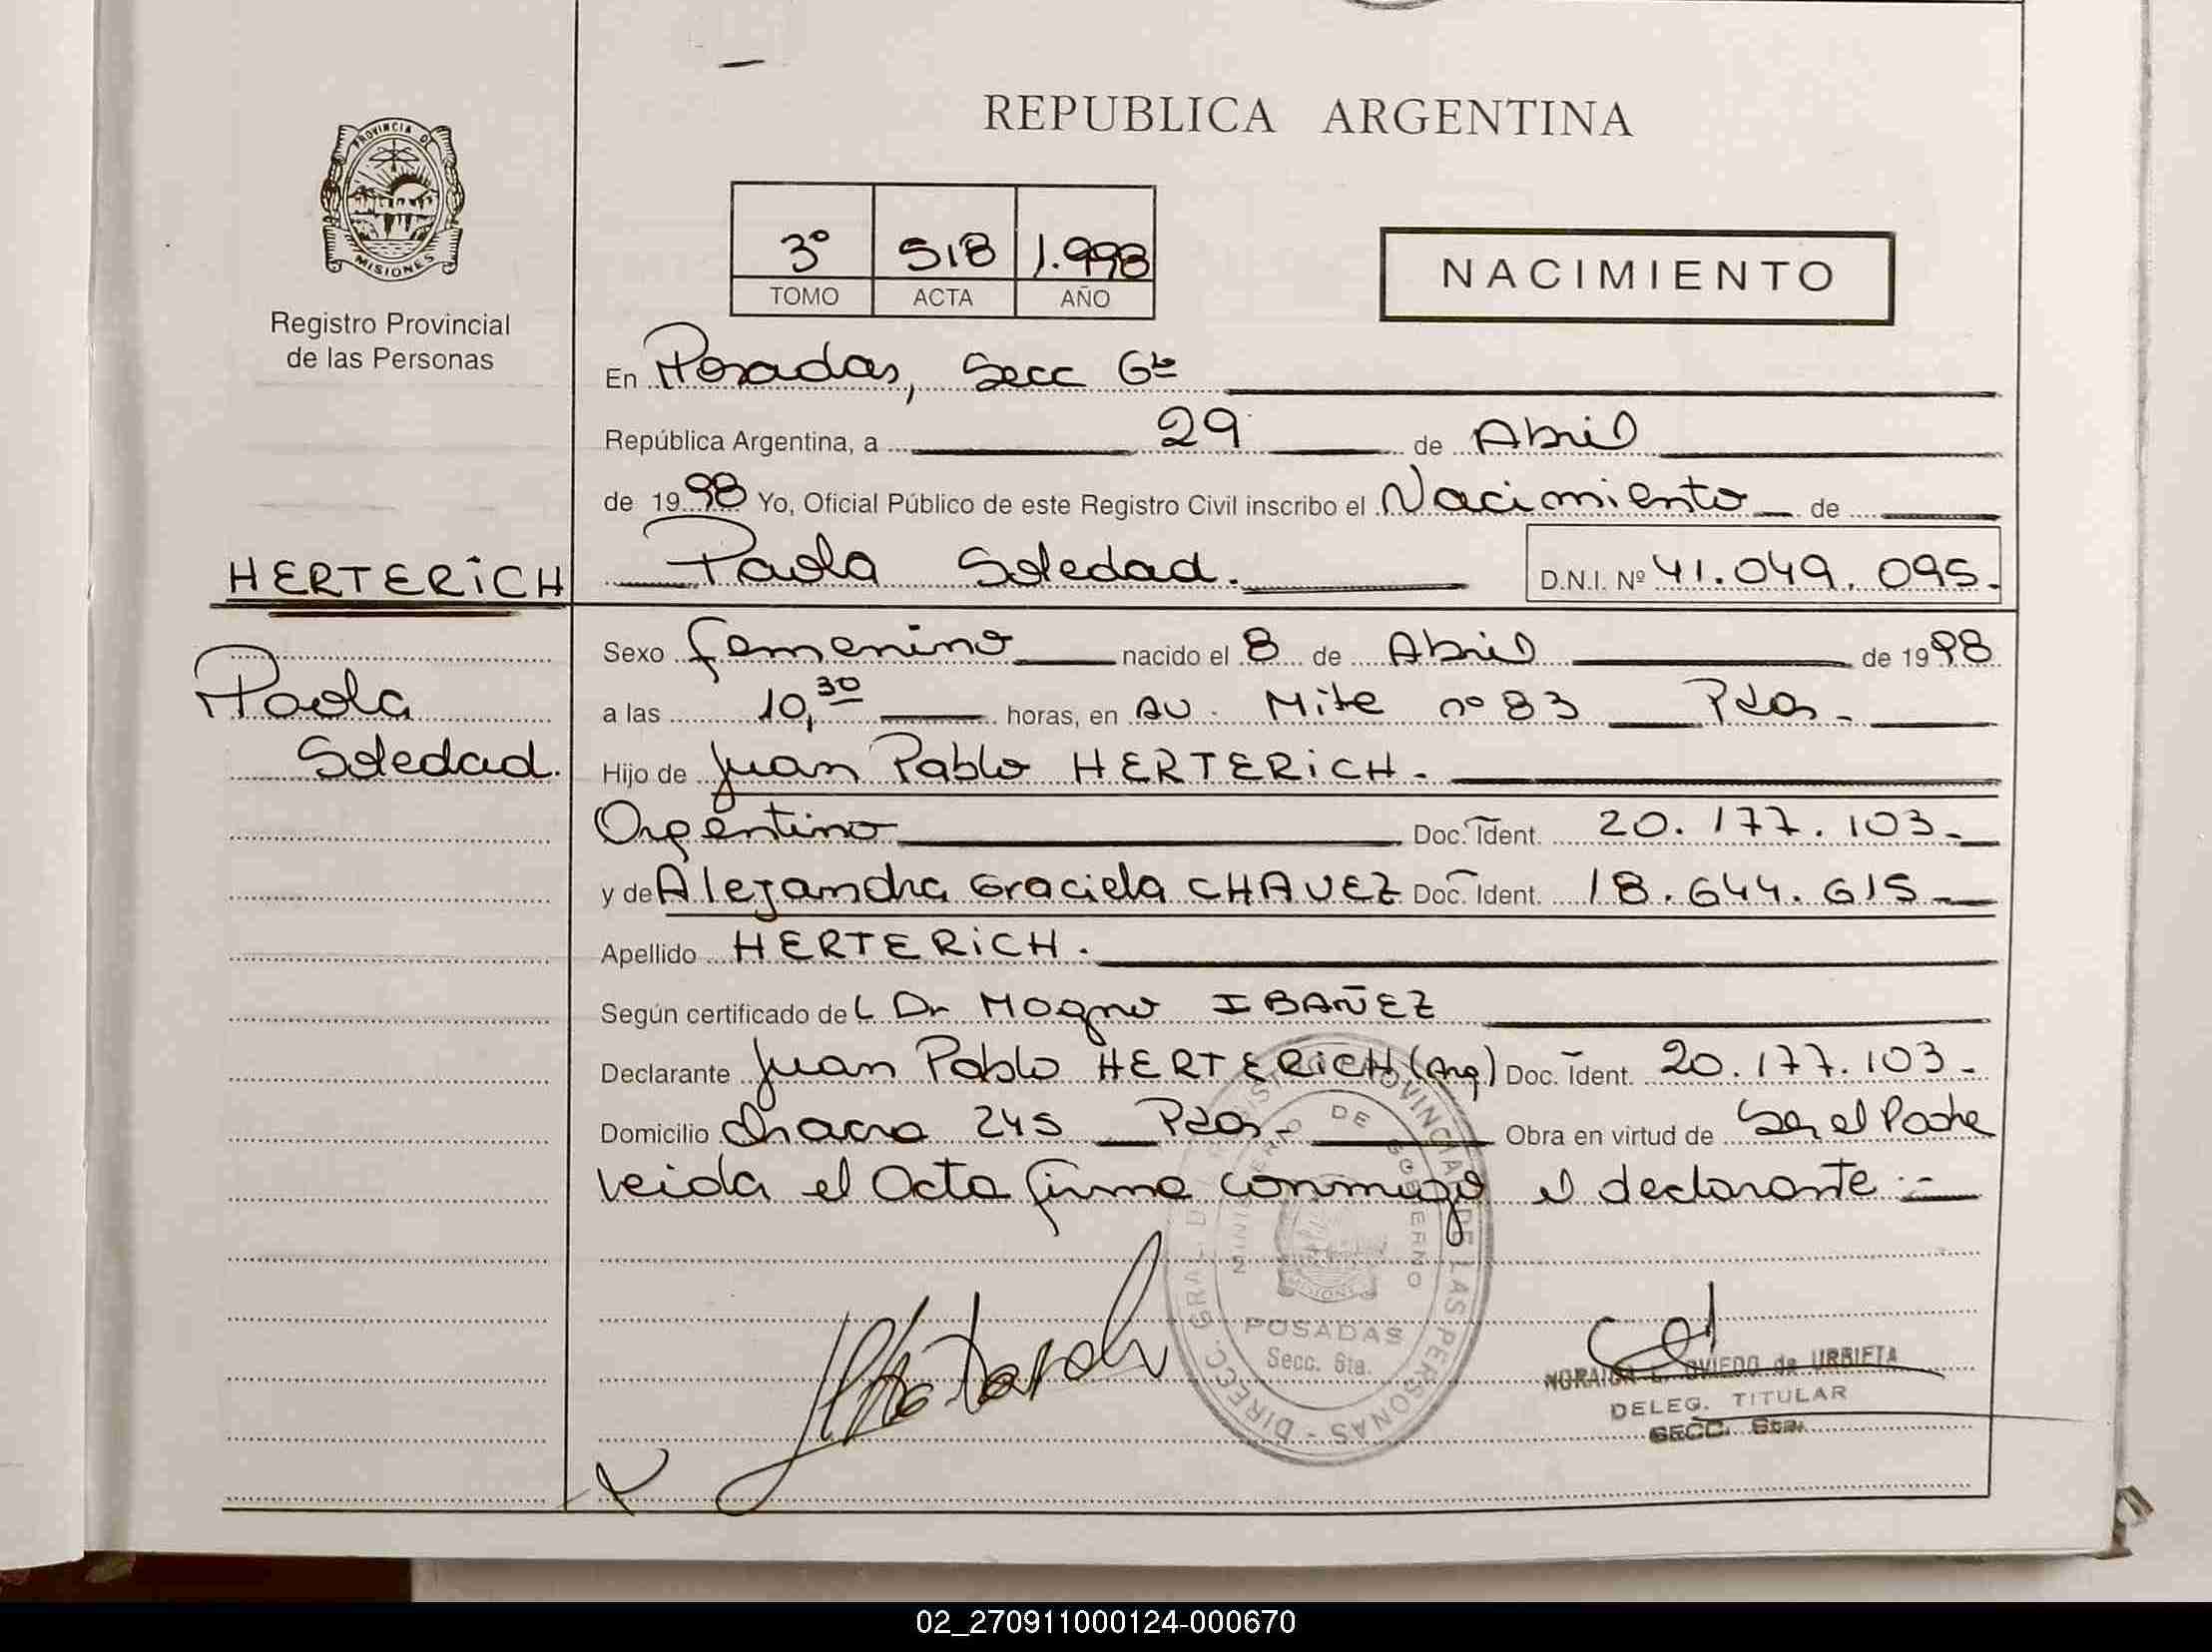 PROVINCIA DE
MISIONES
Registro Provincial
de las Personas
REPUBLICA ARGENTINA
3º 518 1.998
TOMO ACTA AÑO
NACIMIENTO
En Posadas, Secc 6ta
República Argentina, a 29 de Abril
de 1998 Yo, Oficial Público de este Registro Civil inscribo el Nacimiento de
Paola Soledad. D.N.I. Nº 41.049.095.
HERTERICH
Paola
Soledad.
Sexo femenino nacido el 8 de Abril de 1998
a las 10,30 horas, en Av. Mitre nº 83 Pdas.
Hijo de Juan Pablo HERTERICH.
Argentino Doc. Ident. 20.177.103.
y de Alejandra Graciela CHAVEZ Doc. Ident. 18.644.615
Apellido HERTERICH.
Según certificado del Dr Magno IBAÑEZ
Declarante Juan Pablo HERTERICH (Arg) Doc. Ident. 20.177.103.
Domicilio Chacra 245 Pdas. Obra en virtud de Ser el Padre
Leida el Acta firma conmigo el declarante.-
DIRECC. GRAL. DEL REGISTRO PROVINCIAL DE LAS PERSONAS
MINISTERIO DE GOBIERNO
MISIONES
POSADAS
Secc. 6ta.
L. OVIEDO de URBIETA
DELEG. TITULAR
SECC. 6ta.
02_270911000124-000670